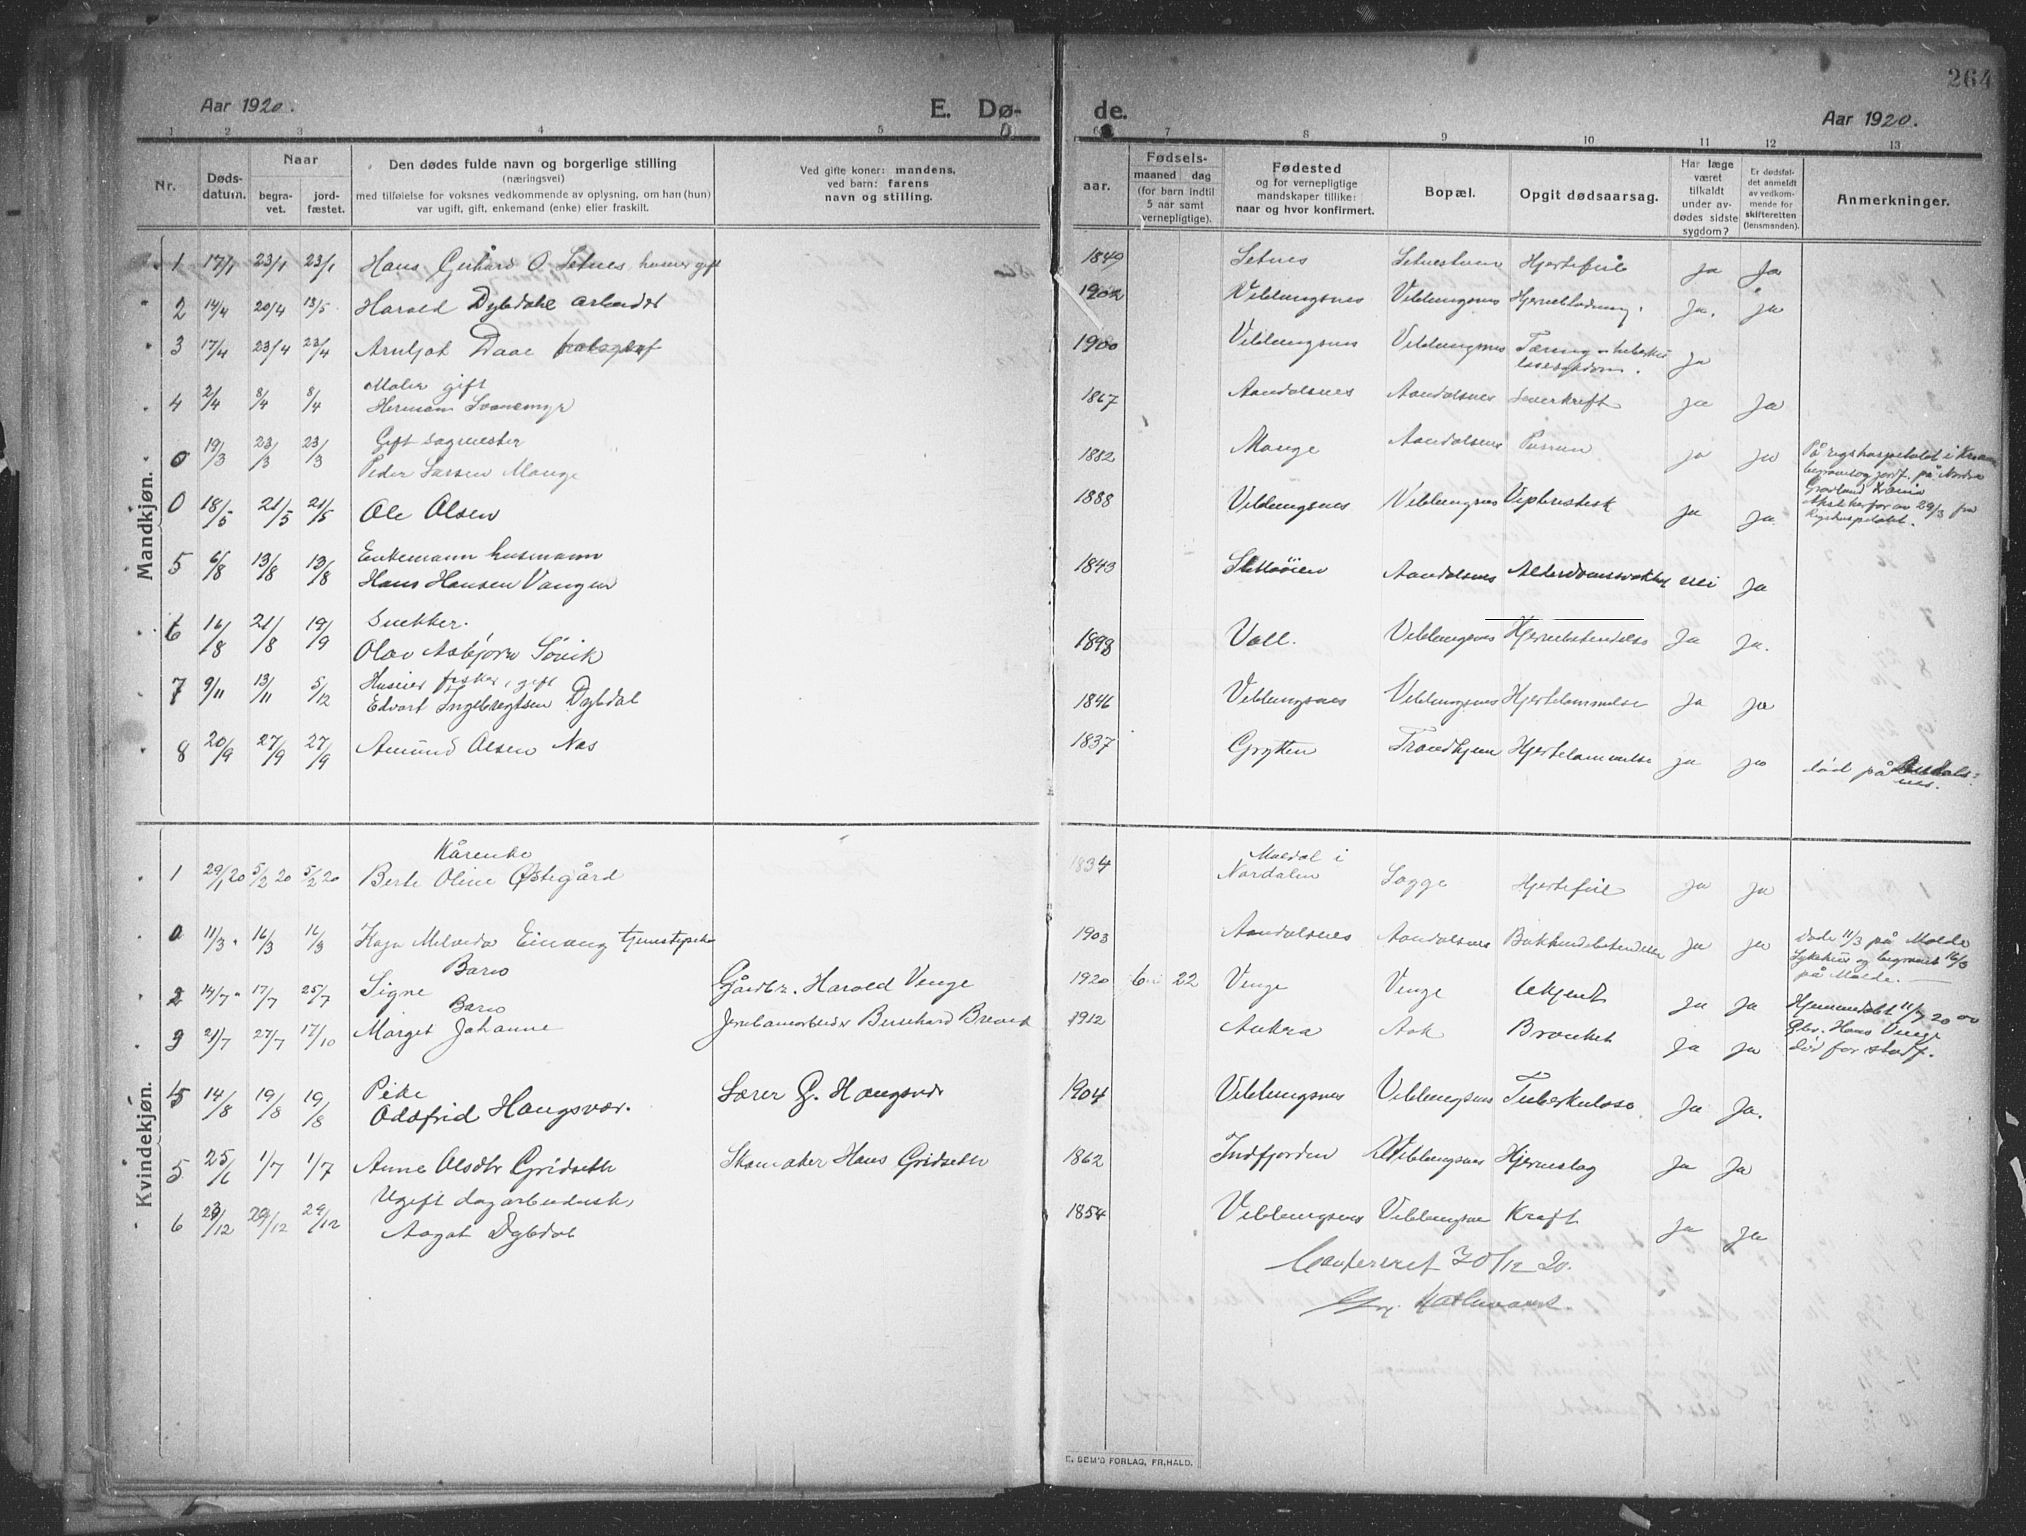 264
Aar 1920.
E. Dø-
de.
Aar 1920.
1 2 3 4 5 6 7 8 9 10 11 12 13
Nr.
Døds-
datum.
Naar
begra-
vet.
jord-
fæstet.
Den dødes fulde navn og borgerlige stilling
(næringsvei)
med tilføielse for voksnes vedkommende av oplysning, om han (hun)
var ugift, gift, enkemand (enke) eller fraskilt.
Ved gifte koner: mandens,
ved barn: farens
navn og stilling.
aar.
Fødsels-
maaned dag
(for barn indtil
5 aar samt
vernepligtige).
Fødested
og for vernepligtige
mandskaper tillike:
naar og hvor konfirmert.
Bopæl.
Opgit dødsaarsag.
Har læge
været
tilkaldt
under av-
dødes sidste
sygdom?
Er dødsfal-
det anmeldt
av vedkom-
mende for
skifteretten
(lensmanden).
Anmerkninger.
Mandkjøn.
1 17/1 23/1 23/1 Hans Gerhard O Setnes, husmer gift 1849 Setnes Hjertefeil ja Ja
2 14/4 20/4 13/5 Harald Dybdahl arbeider 1902 Veblungsnes Veblungsnes ja. ja
3 17/4 23/4 23/4 Arnljot Daae 1900 Veblungsnes Veblungsnes Tæring ja
Maler gift
4 2/4 8/4 8/4 Herman Svanemyr 1867 Aandalsnes Aandalsnes Leverkreft ja Ja
Gift sagmester
0 19/3 23/3 23/3 Peder Larsen Mange 1882 Mange Aandalsnes ja ja
På rigshospitalet i
begravet og jordf. på Nordre
Gravlund Kr.ania
29/3 fra
Rigshospitalet.
0 18/5 21/5 21/5 Ole Olsen 1888 Veblungsnes Veblungsnes ja ja
Enkemann husmann
5 6/8 13/8 13/8 Hans Hansen Vangen 1843 Aandalsnes nei ja
Snekker.
6 16/8 21/8 19/9 Olav Asbjørn Søvik 1898 Voll. Veblungsnes Hjernebetendelse Ja Ja.
fisker, gift
7 9/11 13/11 5/12 Edvart Ingebregtsen Dybdal 1846 Veblungsnes Veblungsnes Hjertelammelse Ja ja
8 20/9 27/9 27/9 Amund Olsen Nos 1837 Grytten Trondhjem Hjertelammelse ja ja død på Aandals-
nes.
Kvindekjøn.
Kårenke
1 29/1 20 5/2 20 5/2 20 Berte Oline Østegård 1834 Maldal i
Nordalen Sogge Hjertefeil ja ja
0 11/3 16/3 16/3 Einang tjenestepike 1903 Aandalsnes Aandalsnes ja ja
Døde 11/3 på Molde
Sykehus og begravet 16/3
på Molde.
Barn
2 14/7 17/7 25/7 Signe Gårdbr. Harald Venge 1920 6 22 Venge Venge Ukjent ja ja
Hjemmedøbt 11/7 20 av
Gbr. Hans Venge
død før stadf.
Barn
3 21/7 27/7 17/10 Marget Johanne Jernbanearbeider Bernhard Brevik 1912 Aukra Aak Bronket Ja ja
Pike
14/8 19/8 19/8 Odsfrid Haugsvær. Lærer G. Haugsvær 1904 Veblungsnes Veblungsnes Tuberkulose Ja Ja.
5 25/6 1/7 1/7 Anne Olsdtr Gridseth Skomaker Hans Gridseth 1862 Indfjorden Veblungsnes Hjerneslag Ja Ja
Ugift dagarbeidersk.
6 23/12 29/12 29/12 Aagot Dybdal 1854 Veblungsnes Veblungsnes Kreft Ja ja
Confereret 30/12 20.
E. SEM'S FORLAG, FR,HALD.